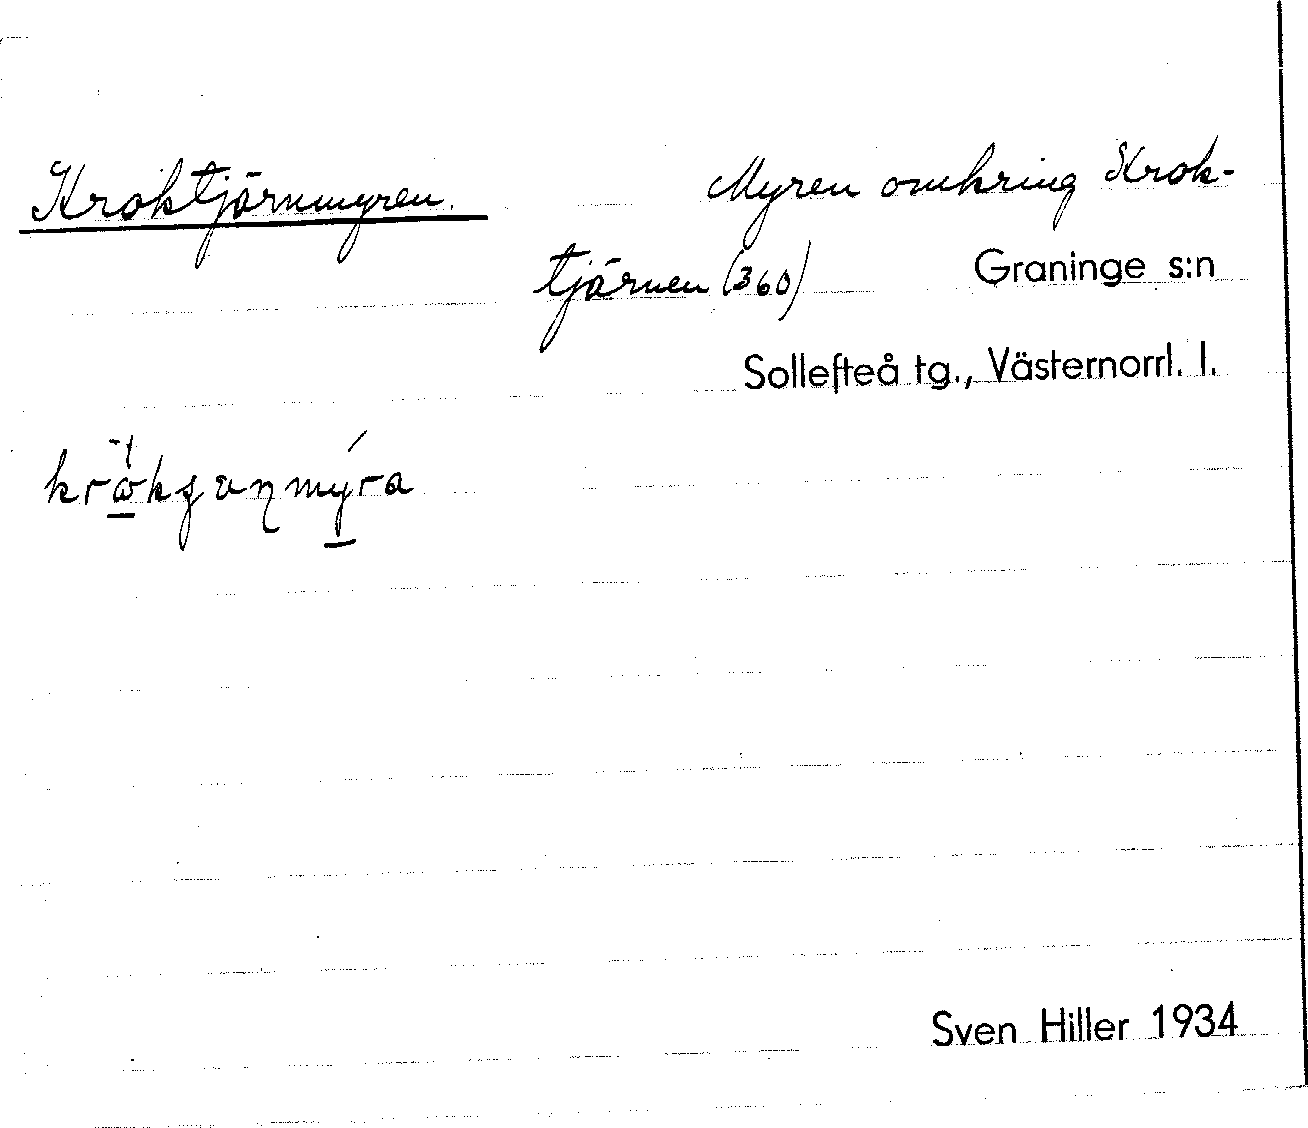 Kroktjärnmyren. Myren omkring Krok-
tjärnen (360)
Graninge s:n
Sollefteå tg., Västernorrl. l.
Sven Hiller 1934